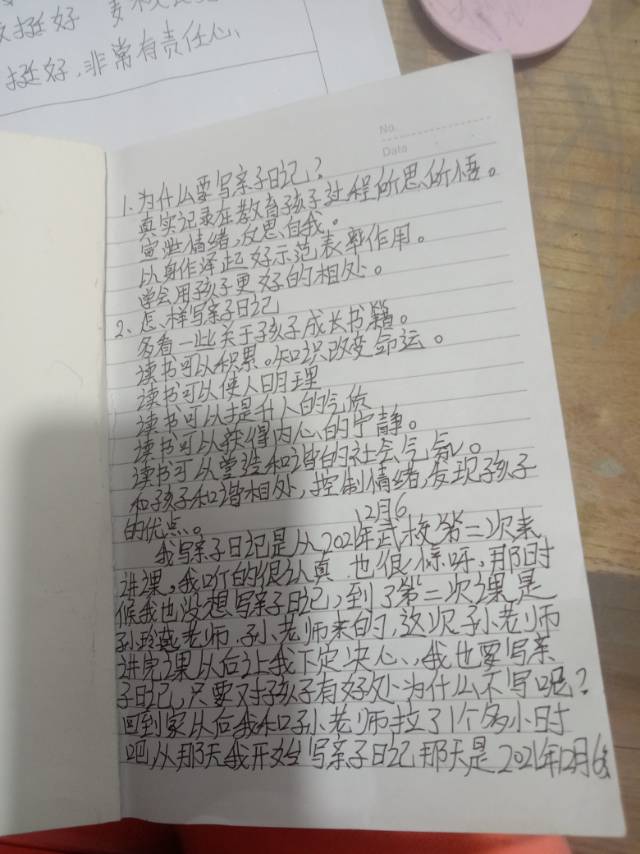 挺好
挺好,非常有责任心、
No.
Data
1.为什么要写亲子日记?
真实记录在教育孩子过程所思、所悟。
宣泄情绪,反思自我。
以身作泽起好示范表率作用。
学会用孩子更好的相处。
2、怎样写亲子日记
多看一些关于孩子成长书籍。
读书可以积累。知识改变命运。
读书可以使人明理
读书可以提升人的气质
读书可以获得内心的宁静。
读书可以营造和谐的社会气氛。
和孩子和谐相处,控制情绪,发现孩子
的优点。
12月6
我写亲子日记是从2021年武校第二次来
讲课,我听的很认真 也很
那时
候我也没想写亲子日记,到了第二次课是
孙玲燕老师,孙老师来的,这次孙老师
讲完课从后让我下定决心、我也要写亲
子日记,只要对孩子有好处为什么不写呢?
回到家以后我和孙老师拉了1个多小时
吧,从那天我开始写亲子日记那天是2021年12月6